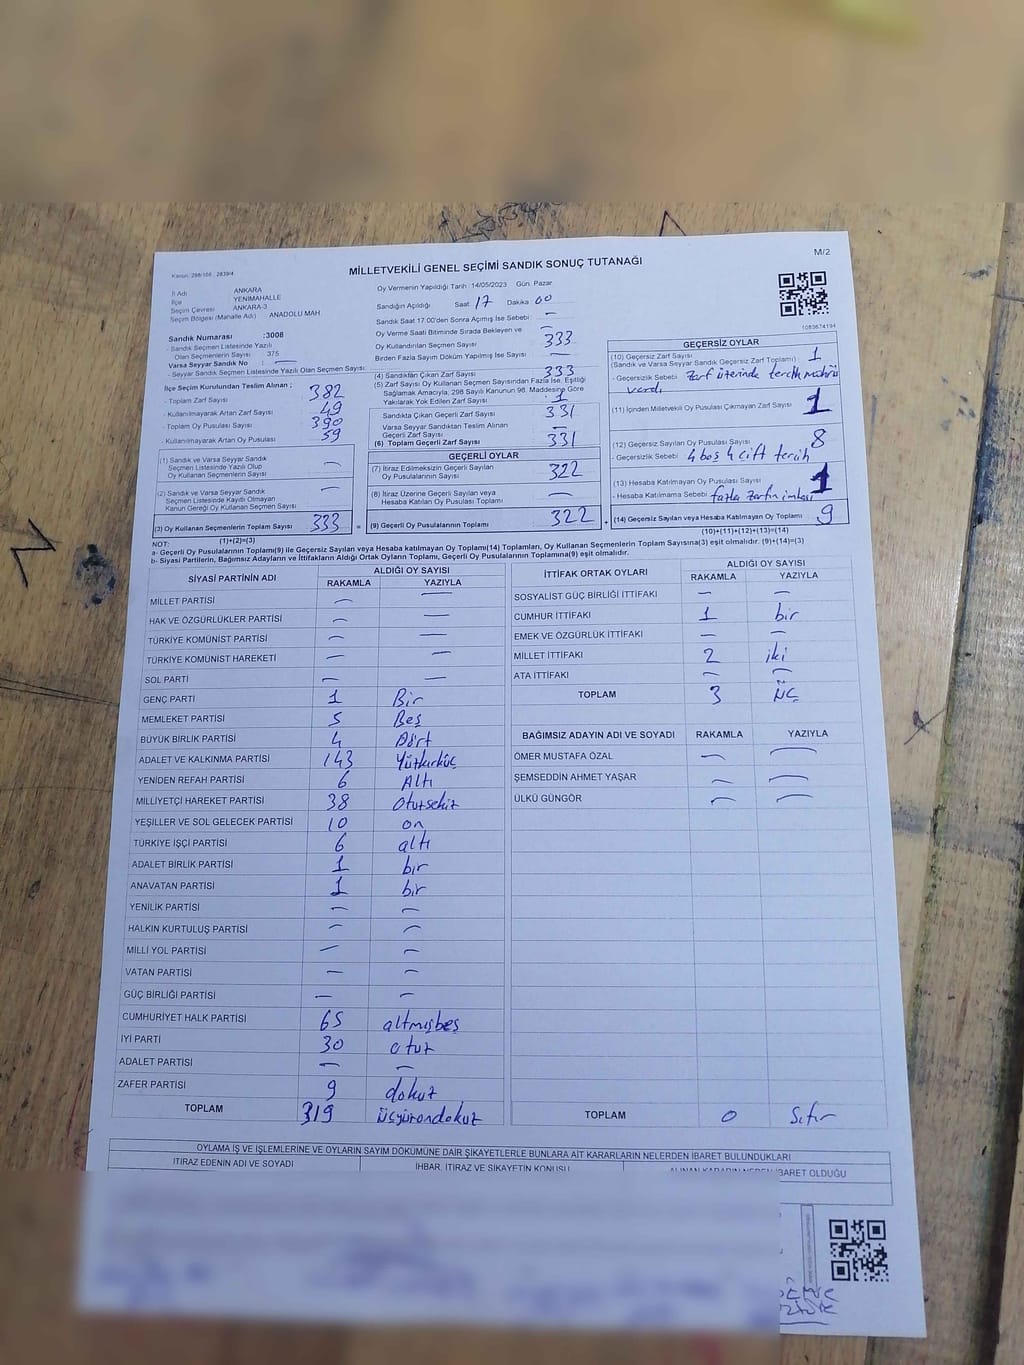 M/2
Kanun: 298/105 , 2839/4
MİLLETVEKİLİ GENEL SEÇİMİ SANDIK SONUÇ TUTANAĞI
İl Adı ANKARA
İlçe YENİMAHALLE
Seçim Çevresi ANKARA-3
Seçim Bölgesi (Mahalle Adı) ANADOLU MAH
Sandık Numarası :3008
- Sandık Seçmen Listesinde Yazılı
Olan Seçmenlerin Sayısı 375
Varsa Seyyar Sandık No : —
- Seyyar Sandık Seçmen Listesinde Yazılı Olan Seçmen Sayısı:
İlçe Seçim Kurulundan Teslim Alınan ;
- Toplam Zarf Sayısı 382
- Kullanılmayarak Artan Zarf Sayısı 49
- Toplam Oy Pusulası Sayısı 390
- Kullanılmayarak Artan Oy Pusulası 59
(1) Sandık ve Varsa Seyyar Sandık
Seçmen Listesinde Yazılı Olup
Oy Kullanan Seçmenlerin Sayısı —
(2) Sandık ve Varsa Seyyar Sandık
Seçmen Listesinde Kayıtlı Olmayan
Kanun Gereği Oy Kullanan Seçmen Sayısı —
(3) Oy Kullanan Seçmenlerin Toplam Sayısı 333 =
(1)+(2)=(3)
Oy Vermenin Yapıldığı Tarih :14/05/2023 Gün: Pazar
Sandığın Açıldığı Saat: 17 Dakika 00
Sandık Saat 17.00'den Sonra Açılmış İse Sebebi: —
Oy Verme Saati Bitiminde Sırada Bekleyen ve
Oy Kullandırılan Seçmen Sayısı 333
Birden Fazla Sayım Döküm Yapılmış İse Sayısı —
(4) Sandıktan Çıkan Zarf Sayısı 333
(5) Zarf Sayısı Oy Kullanan Seçmen Sayısından Fazla İse, Eşitliği
Sağlamak Amacıyla, 298 Sayılı Kanunun 98. Maddesine Göre
Yakılarak Yok Edilen Zarf Sayısı 1
Sandıkta Çıkan Geçerli Zarf Sayısı 331
Varsa Seyyar Sandıktan Teslim Alınan
Geçerli Zarf Sayısı —
(6) Toplam Geçerli Zarf Sayısı 331
GEÇERLİ OYLAR
(7) İtiraz Edilmeksizin Geçerli Sayılan
Oy Pusulalarının Sayısı 322
(8) İtiraz Üzerine Geçerli Sayılan veya
Hesaba Katılan Oy Pusulası Toplamı —
(9) Geçerli Oy Pusulalarının Toplamı 322 +
1083674194
GEÇERSİZ OYLAR
(10) Geçersiz Zarf Sayısı 1
(Sandık ve Varsa Seyyar Sandık Geçersiz Zarf Toplamı)
- Geçersizlik Sebebi Zarf üzerinde tercih mührü
vardı
(11) İçinden Milletvekili Oy Pusulası Çıkmayan Zarf Sayısı 1
(12) Geçersiz Sayılan Oy Pusulası Sayısı 8
- Geçersizlik Sebebi 4 boş 4 çift tercih
(13) Hesaba Katılmayan Oy Pusulası Sayısı 1
- Hesaba Katılmama Sebebi fazla zarfın imhası
(14) Geçersiz Sayılan veya Hesaba Katılmayan Oy Toplamı 9
(10)+(11)+(12)+(13)=(14)
NOT:
a- Geçerli Oy Pusulalarının Toplamı(9) ile Geçersiz Sayılan veya Hesaba katılmayan Oy Toplamı(14) Toplamları, Oy Kullanan Seçmenlerin Toplam Sayısına(3) eşit olmalıdır. (9)+(14)=(3)
b- Siyasi Partilerin, Bağımsız Adayların ve İttifakların Aldığı Ortak Oyların Toplamı, Geçerli Oy Pusulalarının Toplamına(9) eşit olmalıdır.
SİYASİ PARTİNİN ADI ALDIĞI OY SAYISI
RAKAMLA YAZIYLA
MİLLET PARTİSİ — —
HAK VE ÖZGÜRLÜKLER PARTİSİ — —
TÜRKİYE KOMÜNİST PARTİSİ — —
TÜRKİYE KOMÜNİST HAREKETİ — —
SOL PARTİ — —
GENÇ PARTİ 1 Bir
MEMLEKET PARTİSİ 5 Beş
BÜYÜK BİRLİK PARTİSİ 4 Dört
ADALET VE KALKINMA PARTİSİ 143 Yüzkırküç
YENİDEN REFAH PARTİSİ 6 Altı
MİLLİYETÇİ HAREKET PARTİSİ 38 Otuzsekiz
YEŞİLLER VE SOL GELECEK PARTİSİ 10 on
TÜRKİYE İŞÇİ PARTİSİ 6 altı
ADALET BİRLİK PARTİSİ 1 bir
ANAVATAN PARTİSİ 1 bir
YENİLİK PARTİSİ — —
HALKIN KURTULUŞ PARTİSİ — —
MİLLİ YOL PARTİSİ — —
VATAN PARTİSİ — —
GÜÇ BİRLİĞİ PARTİSİ — —
CUMHURİYET HALK PARTİSİ 65 altmışbeş
İYİ PARTİ 30 otuz
ADALET PARTİSİ — —
ZAFER PARTİSİ 9 dokuz
TOPLAM 319 üçyüzondokuz
İTTİFAK ORTAK OYLARI ALDIĞI OY SAYISI
RAKAMLA YAZIYLA
SOSYALİST GÜÇ BİRLİĞİ İTTİFAKI — —
CUMHUR İTTİFAKI 1 bir
EMEK VE ÖZGÜRLÜK İTTİFAKI — —
MİLLET İTTİFAKI 2 iki
ATA İTTİFAKI — —
TOPLAM 3 üç
BAĞIMSIZ ADAYIN ADI VE SOYADI RAKAMLA YAZIYLA
ÖMER MUSTAFA ÖZAL — —
ŞEMSEDDİN AHMET YAŞAR — —
ÜLKÜ GÜNGÖR — —
TOPLAM 0 Sıfır
OYLAMA İŞ VE İŞLEMLERİNE VE OYLARIN SAYIM DÖKÜMÜNE DAİR ŞİKAYETLERLE BUNLARA AİT KARARLARIN NELERDEN İBARET BULUNDUKLARI
İTİRAZ EDENİN ADI VE SOYADI İHBAR, İTİRAZ VE ŞİKAYETİN KONUSU ALINAN KARARIN NEDEN İBARET OLDUĞU